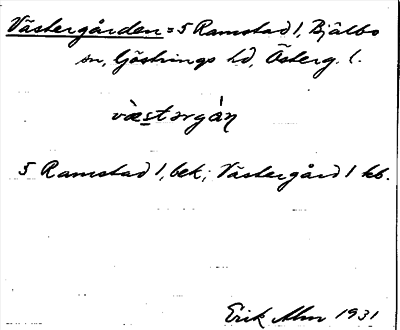 Västergården = 5 Ramstad 1, Bjälbo
sn, Göstrings hd, Österg. l.
væ̀stərgàɳ
5 Ramstad 1, bek; Västergård 1 kb.
Erik Alm 1931